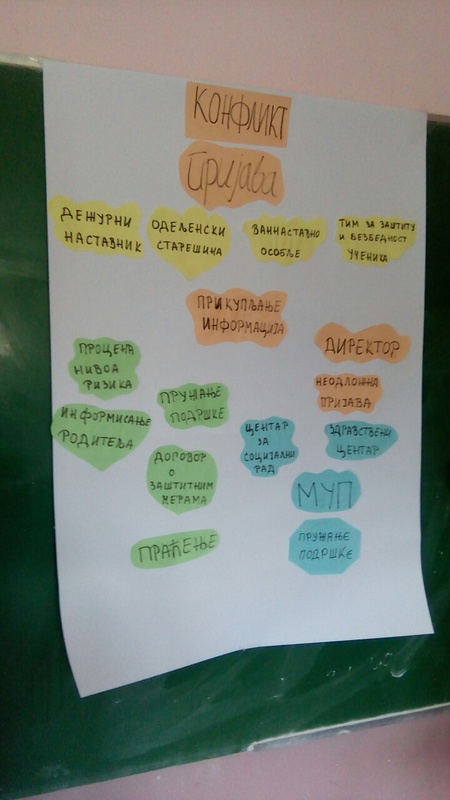 КОНФЛИКТ
Пријава
ДЕЖУРНИ
НАСТАВНИК
ОДЕЉЕНСКИ
СТАРЕШИНА
ВАННАСТАВНО
ОСОБЉЕ
ТИМ ЗА ЗАШТИТУ
И БЕЗБЕДНОСТ
УЧЕНИКА
ПРИКУПЉАЊЕ
ИНФОРМАЦИЈА
ДИРЕКТОР
НЕОДЛОЖНА
ПРИЈАВА
ПРОЦЕНА
НИВОА
РИЗИКА
ПРУЖАЊЕ
ПОДРШКЕ
ИНФОРМИСАЊЕ
РОДИТЕЉА
ДОГОВОР
О
ЗАШТИТНИМ
МЕРАМА
ЦЕНТАР
ЗА
СОЦИЈАЛНИ
РАД
ЗДРАВСТВЕНИ
ЦЕНТАР
МУП
ПРАЋЕЊЕ
ПРУЖАЊЕ
ПОДРШКЕ